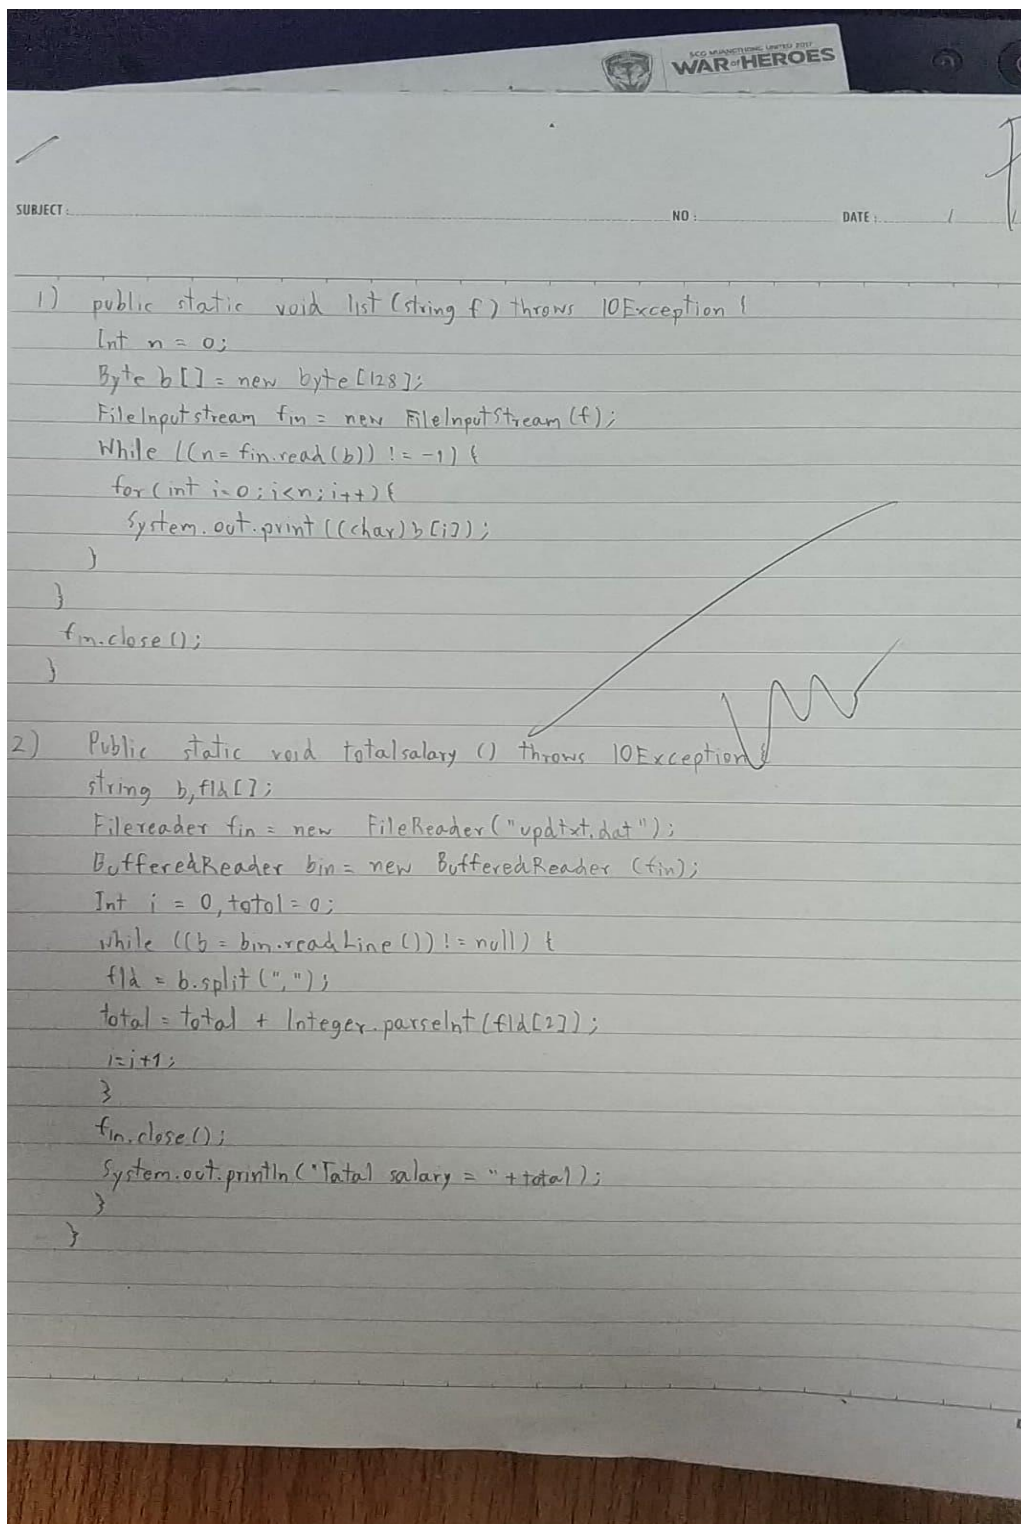 SCG MUANGTHONG UNITED 2017
WAR of HEROES
SUBJECT :
NO :
DATE : / /
1) public static void list (string f) throws IOException {
Int n = 0;
Byte b[] = new byte [128];
FileInputstream fin = new FileInputStream (f);
While ((n = fin.read (b)) != -1) {
for (int i=0; i<n; i++) {
System.out.print ((char) b [i]);
}
}
fin.close ();
}
2) Public static void totalsalary () throws IOException {
string b, fld [];
Filereader fin = new FileReader ("updtxt.dat");
BufferedReader bin = new BufferedReader (fin);
Int i = 0, total = 0;
while ((b = bin.readLine ()) != null) {
fld = b.split (",");
total = total + Integer.parseInt (fld [2]);
i=i+1;
}
fin.close ();
System.out.println ("Tatal salary = " + total);
}
}